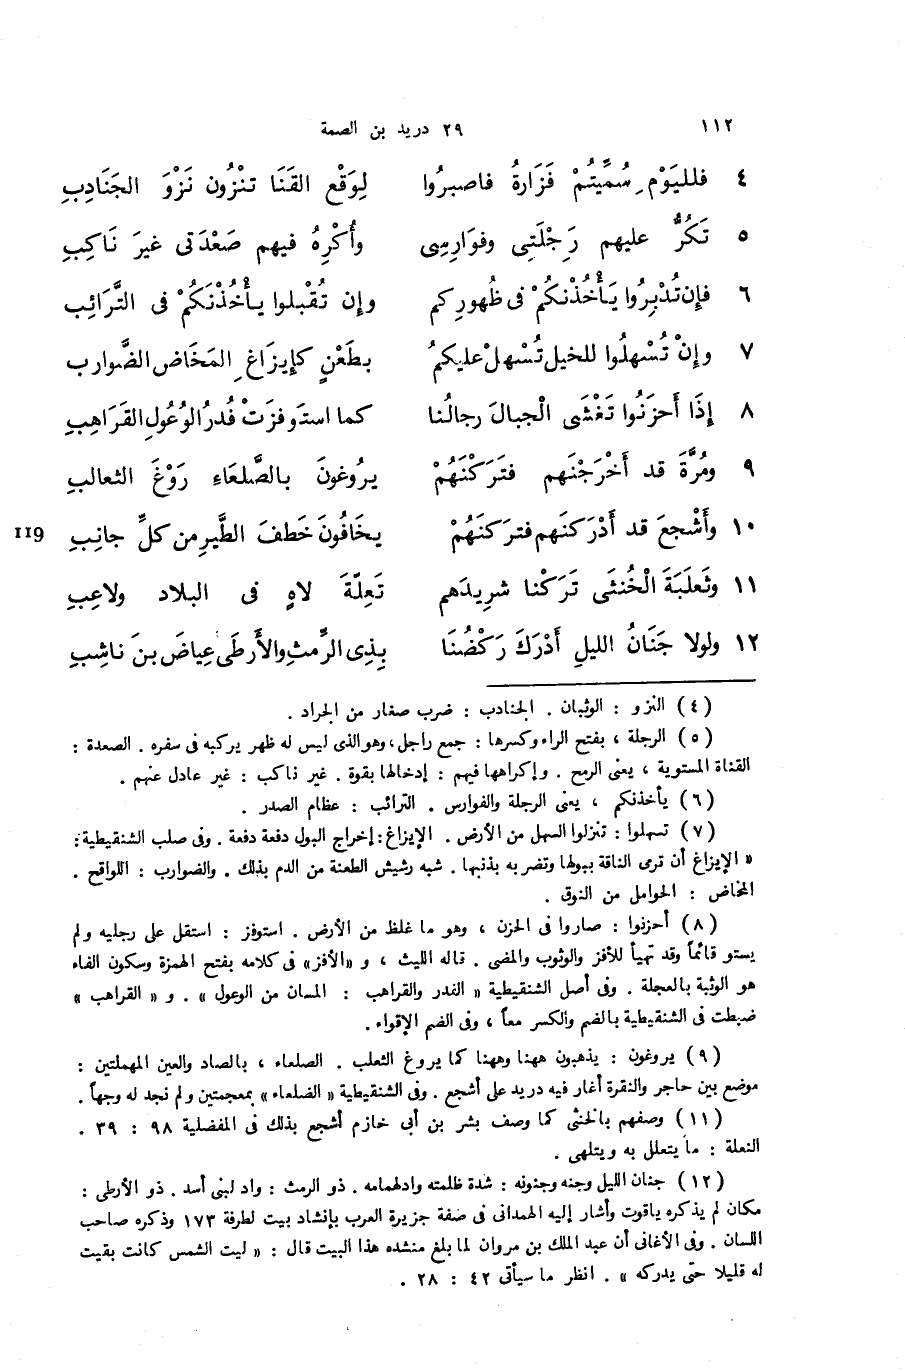 ١١٢ ٢٩ دريد بن الصمة
٤ فلليَوْمِ سُمِّيتُمْ فَزَارةُ فاصبرُوا لِوَقْع القَنَا تنْزُون نَزْوَ الجَنَادِبِ
٥ تَكُرُّ عليهم رَجْلَتِى وفوَارِسِى وأُكْرِهُ فيهم صَعْدَتى غيرَ نَاكِبِ
٦ فإن تُدْبِرُوا يَأْخُذْنكُمْ فى ظُهورِكم وإن تُقْبلوا يأْخُذْنَكُمْ فى التَّرائبِ
٧ وإنْ تُسْهلُوا للخيل تُسْهلْ عليكمُ بطَعْنٍ كإيزَاغِ المَخَاض الضَّواربِ
٨ إذَا أَحزَنُوا تَغْشَى الْجبالَ رجالُنا كما استَوفزَتْ فُدرُ الوُعُولِ القَرَاهبِ
٩ ومُرَّةَ قد أَخْرَجْنَهم فتَرَكْنَهُمْ يرُوغونَ بالصَّلعَاءِ رَوْغَ الثعالبِ
١٠ وأَشْجعَ قد أَدْرَكنَهم فتركنَهُمْ يخَافُونَ خَطفَ الطَّيرِ من كلِّ جانِبِ
119
١١ وثَعلَبَةَ الْخُنثَى تَرَكْنا شرِيدَهم تَعِلّةَ لاهٍ فى البلاد ولاعِبِ
١٢ ولولا جَنَانُ الليلِ أَدْرَكَ رَكْضُنَا بِذِى الرِّمثِ والأَرطَى عِياضَ بنَ ناشِبِ
(٤) النزو : الوثبان . الجنادب : ضرب صغار من الجراد .
(٥) الرجلة ، بفتح الراء وكسرها : جمع راجل، وهو الذى ليس له ظهر يركبه فى سفره . الصعدة :
القناة المستوية ، يعنى الرمح . وإكراهها فيهم : إدخالها بقوة . غير ناكب : غير عادل عنهم .
(٦) يأخذنكم ، يعنى الرجلة والفوارس . الترائب : عظام الصدر .
(٧) تسهلوا : تنزلوا السهل من الأرض . الإيزاغ : إخراج البول دفعة دفعة . وفى صلب الشنقيطية :
« الإيزاغ أن ترمى الناقة ببولها وتضر به بذنبها . شبه رشيش الطعنة من الدم بذلك . والضوارب : اللواقح .
المخاض : الحوامل من النوق .
(٨) أحزنوا : صاروا فى الحزن ، وهو ما غلظ من الأرض . استوفز : استقل على رجليه ولم
يستو قائماً وقد تهيأ للأفز والوثوب والمضى . قاله الليث ، و «الأفز» فى كلامه بفتح الهمزة وسكون الفاء
هو الوثبة بالعجلة . وفى أصل الشنقيطية « الفدر والقراهب : المسان من الوعول » . و « القراهب »
ضبطت فى الشنقيطية بالضم والكسر معاً ، وفى الضم الإقواء .
(٩) يروغون : يذهبون ههنا وههنا كما يروغ الثعلب . الصلعاء ، بالصاد والعين المهملتين :
موضع بين حاجر والنقرة أغار فيه دريد على أشجع . وفى الشنقيطية « الضلغاء » بمعجمتين ولم نجد له وجهاً .
(١١) وصفهم بالخنثى كما وصف بشر بن أبى خازم أشجع بذلك فى المفضلية ٩٨ : ٣٩ .
التعلة : ما يتعلل به ويتلهى .
(١٢) جنان الليل وجنه وجنونه : شدة ظلمته وادلهمامه . ذو الرمث : واد لبنى أسد . ذو الأرطى :
مكان لم يذكره ياقوت وأشار إليه الهمدانى فى صفة جزيرة العرب بإنشاد بيت لطرفة ١٧٣ وذكره صاحب
اللسان . وفى الأغانى أن عبد الملك بن مروان لما بلغ منشده هذا البيت قال : « ليت الشمس كانت بقيت
له قليلا حتى يدركه » . انظر ما سيأتى ٤٢ : ٢٨ .